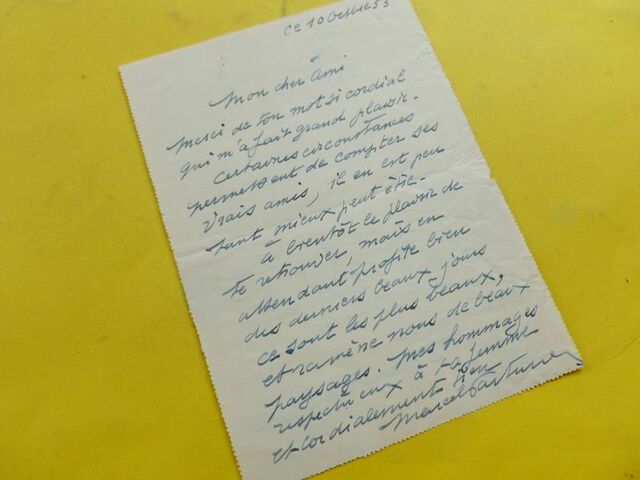 Ce 10 Octobre 55
Mon cher Ami
Merci de ton mot si cordial
qui m'a fait grand plaisir.
Certaines circonstances
permettent de compter ses
vrais amis, il en est peu
tant mieux peut être.
à bientôt le plaisir de
te retrouver, mais en
attendant profite bien
des derniers beaux jours
ce sont les plus beaux,
et ramène nous de beaux
paysages. Mes hommages
respectueux à ta femme
et cordialement tien
Marcel